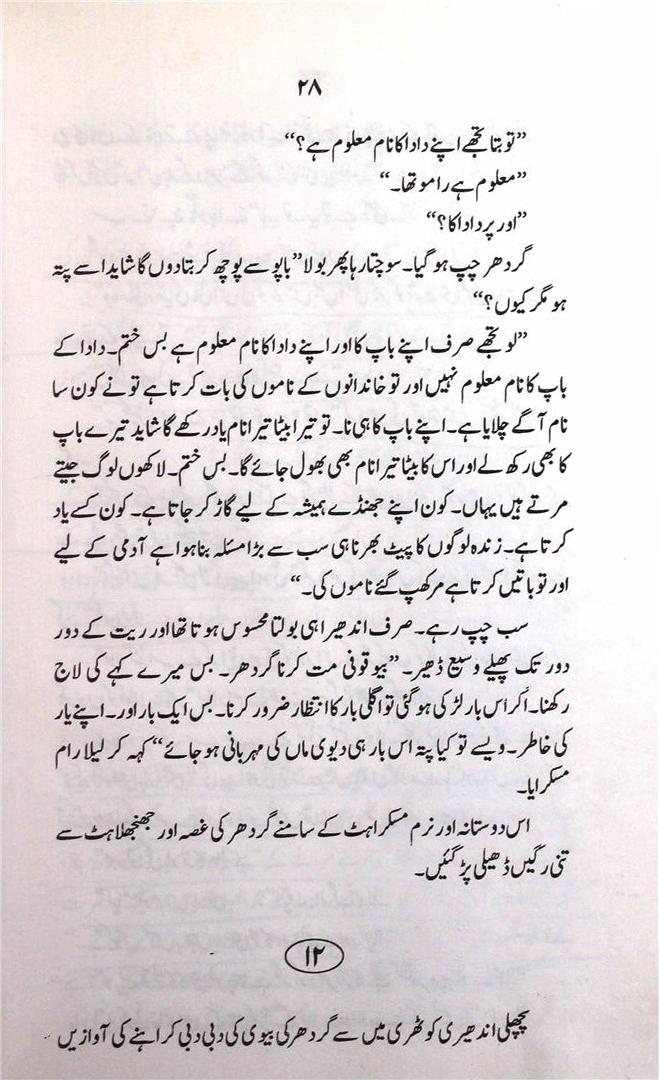 ۲۸
”تو بتا تجھے اپنے دادا کا نام معلوم ہے؟“
”معلوم ہے رامو تھا۔“
”اور پردادا کا؟“
گردھر چپ ہو گیا۔ سوچتا رہا پھر بولا ”باپو سے پوچھ کر بتا دوں گا شاید اسے پتہ
ہو مگر کیوں؟“
”لو تجھے صرف اپنے باپ کا اور اپنے دادا کا نام معلوم ہے بس ختم۔ دادا کے
باپ کا نام معلوم نہیں اور تو خاندانوں کے ناموں کی بات کرتا ہے تو نے کون سا
نام آگے چلایا ہے۔ اپنے باپ کا ہی نا۔ تو تیرا بیٹا تیرا نام یاد رکھے گا شاید تیرے باپ
کا بھی رکھ لے اور اس کا بیٹا تیرا نام بھی بھول جائے گا۔ بس ختم۔ لاکھوں لوگ جیتے
مرتے ہیں یہاں۔ کون اپنے جھنڈے ہمیشہ کے لیے گاڑ کر جاتا ہے۔ کون کسے یاد
کرتا ہے۔ زندہ لوگوں کا پیٹ بھرنا ہی سب سے بڑا مسئلہ بنا ہوا ہے آدمی کے لیے
اور تو باتیں کرتا ہے مر کھپ گئے ناموں کی۔“
سب چپ رہے۔ صرف اندھیرا ہی بولتا محسوس ہوتا تھا اور ریت کے دور
دور تک پھیلے وسیع ڈھیر۔ ”بیوقوفی مت کرنا گردھر۔ بس میرے کہے کی لاج
رکھنا۔ اگر اس بار لڑکی ہو گئی تو اگلی بار کا انتظار ضرور کرنا۔ بس ایک بار اور۔ اپنے یار
کی خاطر۔ ویسے تو کیا پتہ اس بار ہی دیوی ماں کی مہربانی ہو جائے“ کہہ کر لیلا رام
مسکرایا۔
اس دوستانہ اور نرم مسکراہٹ کے سامنے گردھر کی غصہ اور جھنجھلاہٹ سے
تنی رگیں ڈھیلی پڑ گئیں۔
۱۲
پچھلی اندھیری کوٹھری میں سے گردھر کی بیوی کی دبی دبی کراہنے کی آوازیں